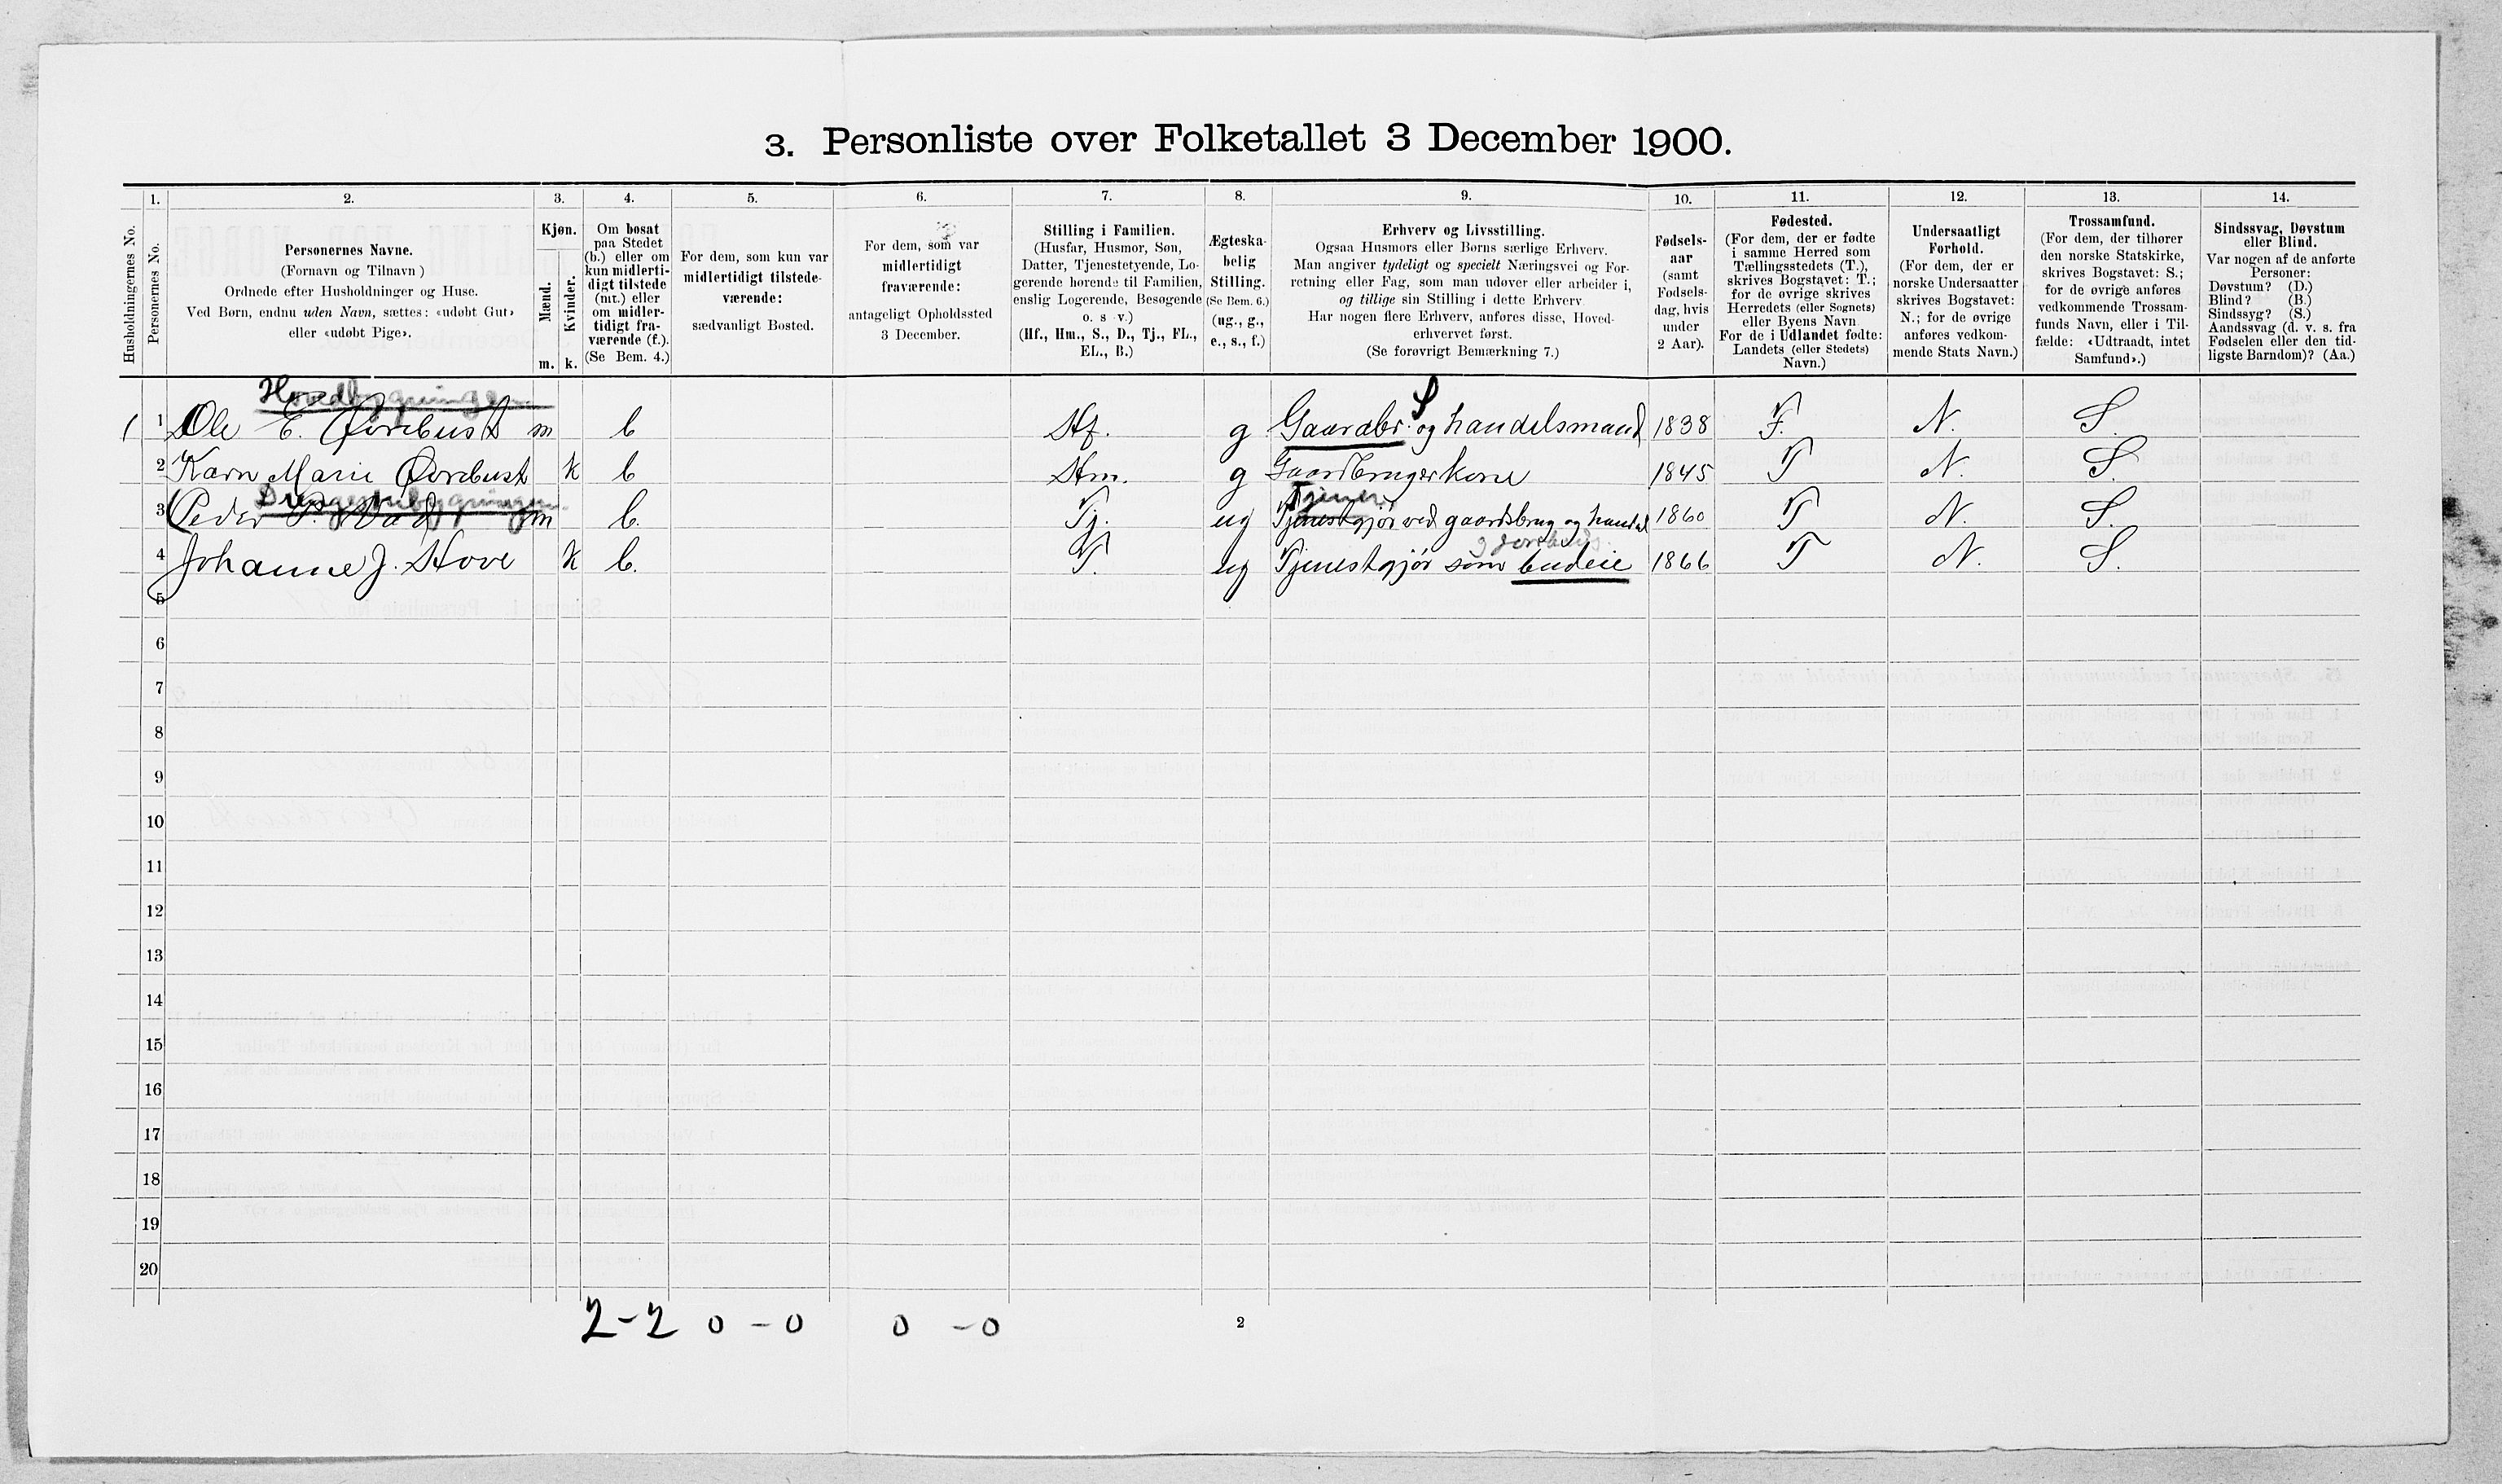 3. Personliste over Folketallet 3 December 1900.
1. 2. 3. 4. 5. 6. 7. 8. 9. 10. 11. 12. 13. 14.
Husholdningernes No.
Personernes No.
Personernes Navne.
(Fornavn og Tilnavn )
Ordnede efter Husholdninger og Huse.
Ved Børn, endnu uden Navn, sættes: «udøbt Gut»
eller «udøbt Pige».
Kjøn.
Mænd.
Kvinder.
m. k.
Om bosat
paa Stedet
(b.) eller om
kun midlerti-
digt tilstede
(mt.) eller
om midler-
tidigt fra-
værende (f.).
(Se Bem. 4.)
For dem, som kun var
midlertidigt tilstede-
værende:
sædvanligt Bosted.
For dem, som var
midlertidigt
fraværende:
antageligt Opholdssted
3 December.
Stilling i Familien.
(Husfar, Husmor, Søn,
Datter, Tjenestetyende, Lo-
gerende hørende til Familien,
enslig Logerende, Besøgende
o. s v.)
(Hf., Hm., S., D., Tj., FL.,
EL., B.)
Ægteska-
belig
Stilling.
(Se Bem. 6.)
(ug., g.,
e., s., f.)
Erhverv og Livsstilling.
Ogsaa Husmors eller Børns særlige Erhverv.
Man angiver tydeligt og specielt Næringsvei og For-
retning eller Fag, som man udøver eller arbeider i,
og tillige sin Stilling i dette Erhverv
Har nogen flere Erhverv, anføres disse, Hoved-
erhvervet først.
(Se forøvrigt Bemærkning 7.)
Fødsels-
aar
(samt
Fødsels-
dag, hvis
under
2 Aar).
Fødested.
(For dem, der er fødte
i samme Herred som
Tællingsstedets (T.),
skrives Bogstavet: T.;
for de øvrige skrives
Herredets (eller Sognets)
eller Byens Navn
For de i Udlandet fødte:
Landets (eller Stedets)
Navn.)
Undersaatligt
Forhold.
(For dem, der er
norske Undersaatter
skrives Bogstavet:
N.; for de øvrige
anføres vedkom-
mende Stats Navn.)
Trossamfund.
(For dem, der tilhører
den norske Statskirke,
skrives Bogstavet: S.;
for de øvrige anføres
vedkommende Trossam-
funds Navn, eller i Til-
fælde: «Udtraadt, intet
Samfund».)
Sindssvag, Døvstum
eller Blind.
Var nogen af de anførte
Personer:
Døvstum? (D.)
Blind? (B.)
Sindssyg? (S.)
Aandssvag (d. v. s. fra
Fødselen eller den tid-
ligste Barndom)? (Aa.)
Hovedbygningen S
1 1 Ole E. Øvrebust m b Hf. g Gaardbr. og handelsmand 1838 T. N. S.
2 Karn Marie Øvrebust k b Hm. g Gaardbrugerkone 1845 T N. S.
Drengestubygningen Tjener
3 Peder m b. Tj. ug Tjenestgjør ved gaardsbrug og handel 1860 T N. S.
4 Johanne J. Hove k b. T. ug Tjenestgjør som budeie 1866 T N. S.
5
6
7
8
9
10
11
12
13
14
15
16
17
18
19
20
2-2 0-0 0-0 2